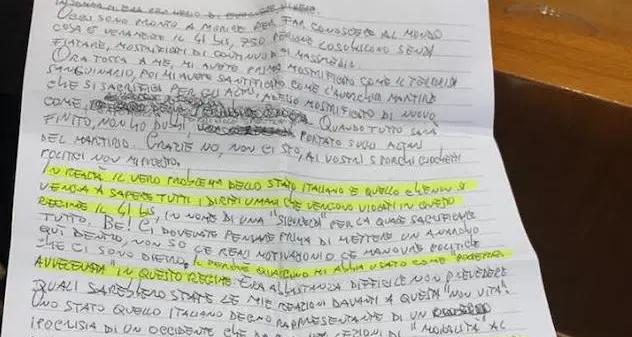 OGGI SONO PRONTO A MORIRE PER FAR CONOSCERE AL MONDO
COSA È VERAMENTE IL 41 BIS, 750 PERSONE LO SUBISCONO SENZA
FIATARE, MOSTRIFICATI DI CONTINUO DAI MASSMEDIA.
ORA TOCCA A ME, MI AVETE PRIMA MOSTRIFICATO COME IL TERRORISTA
SANGUINARIO, POI MI AVETE SANTIFICATO COME L'ANARCHICO MARTIRE
CHE SI SACRIFICA PER GLI ALTRI, ADESSO MOSTRIFICATO DI NUOVO
COME QUANDO TUTTO SARÀ
FINITO, NON HO DUBBI PORTATO SUGLI ALTARI
DEL MARTIRIO. GRAZIE NO, NON CI STO, AI VOSTRI SPORCHI GIOCHETTI
POLITICI NON MI PRESTO.
IN REALTÀ IL VERO PROBLEMA DELLO STATO ITALIANO È QUELLO CHE NON SI
VENGA A SAPERE TUTTI I DIRITTI UMANI CHE VENGONO VIOLATI IN QUESTO
REGIME IL 41 BIS, IN NOME DI UNA "SICUREZZA" PER LA QUALE SACRIFICARE
TUTTO. BE! CI DOVEVATE PENSARE PRIMA DI METTERE UN ANARCHICO
QUI DENTRO, NON SO LE REALI MOTIVAZIONI O LE MANOVRE POLITICHE
CHE CI SONO DIETRO. IL PERCHÈ QUALCUNO MI ABBIA USATO COME "POLPETTA
AVVELENATA" IN QUESTO REGIME. ERA ABBASTANZA DIFFICILE NON PREVEDERE
QUALI SAREBBERO STATE LE MIE REAZIONI DAVANTI A QUESTA "NON VITA".
UNO STATO QUELLO ITALIANO DEGNO RAPPRESENTANTE DI UN
IPOCRISIA DI UN OCCIDENTE CHE DA LEZIONI DI "MORALITÀ" AL